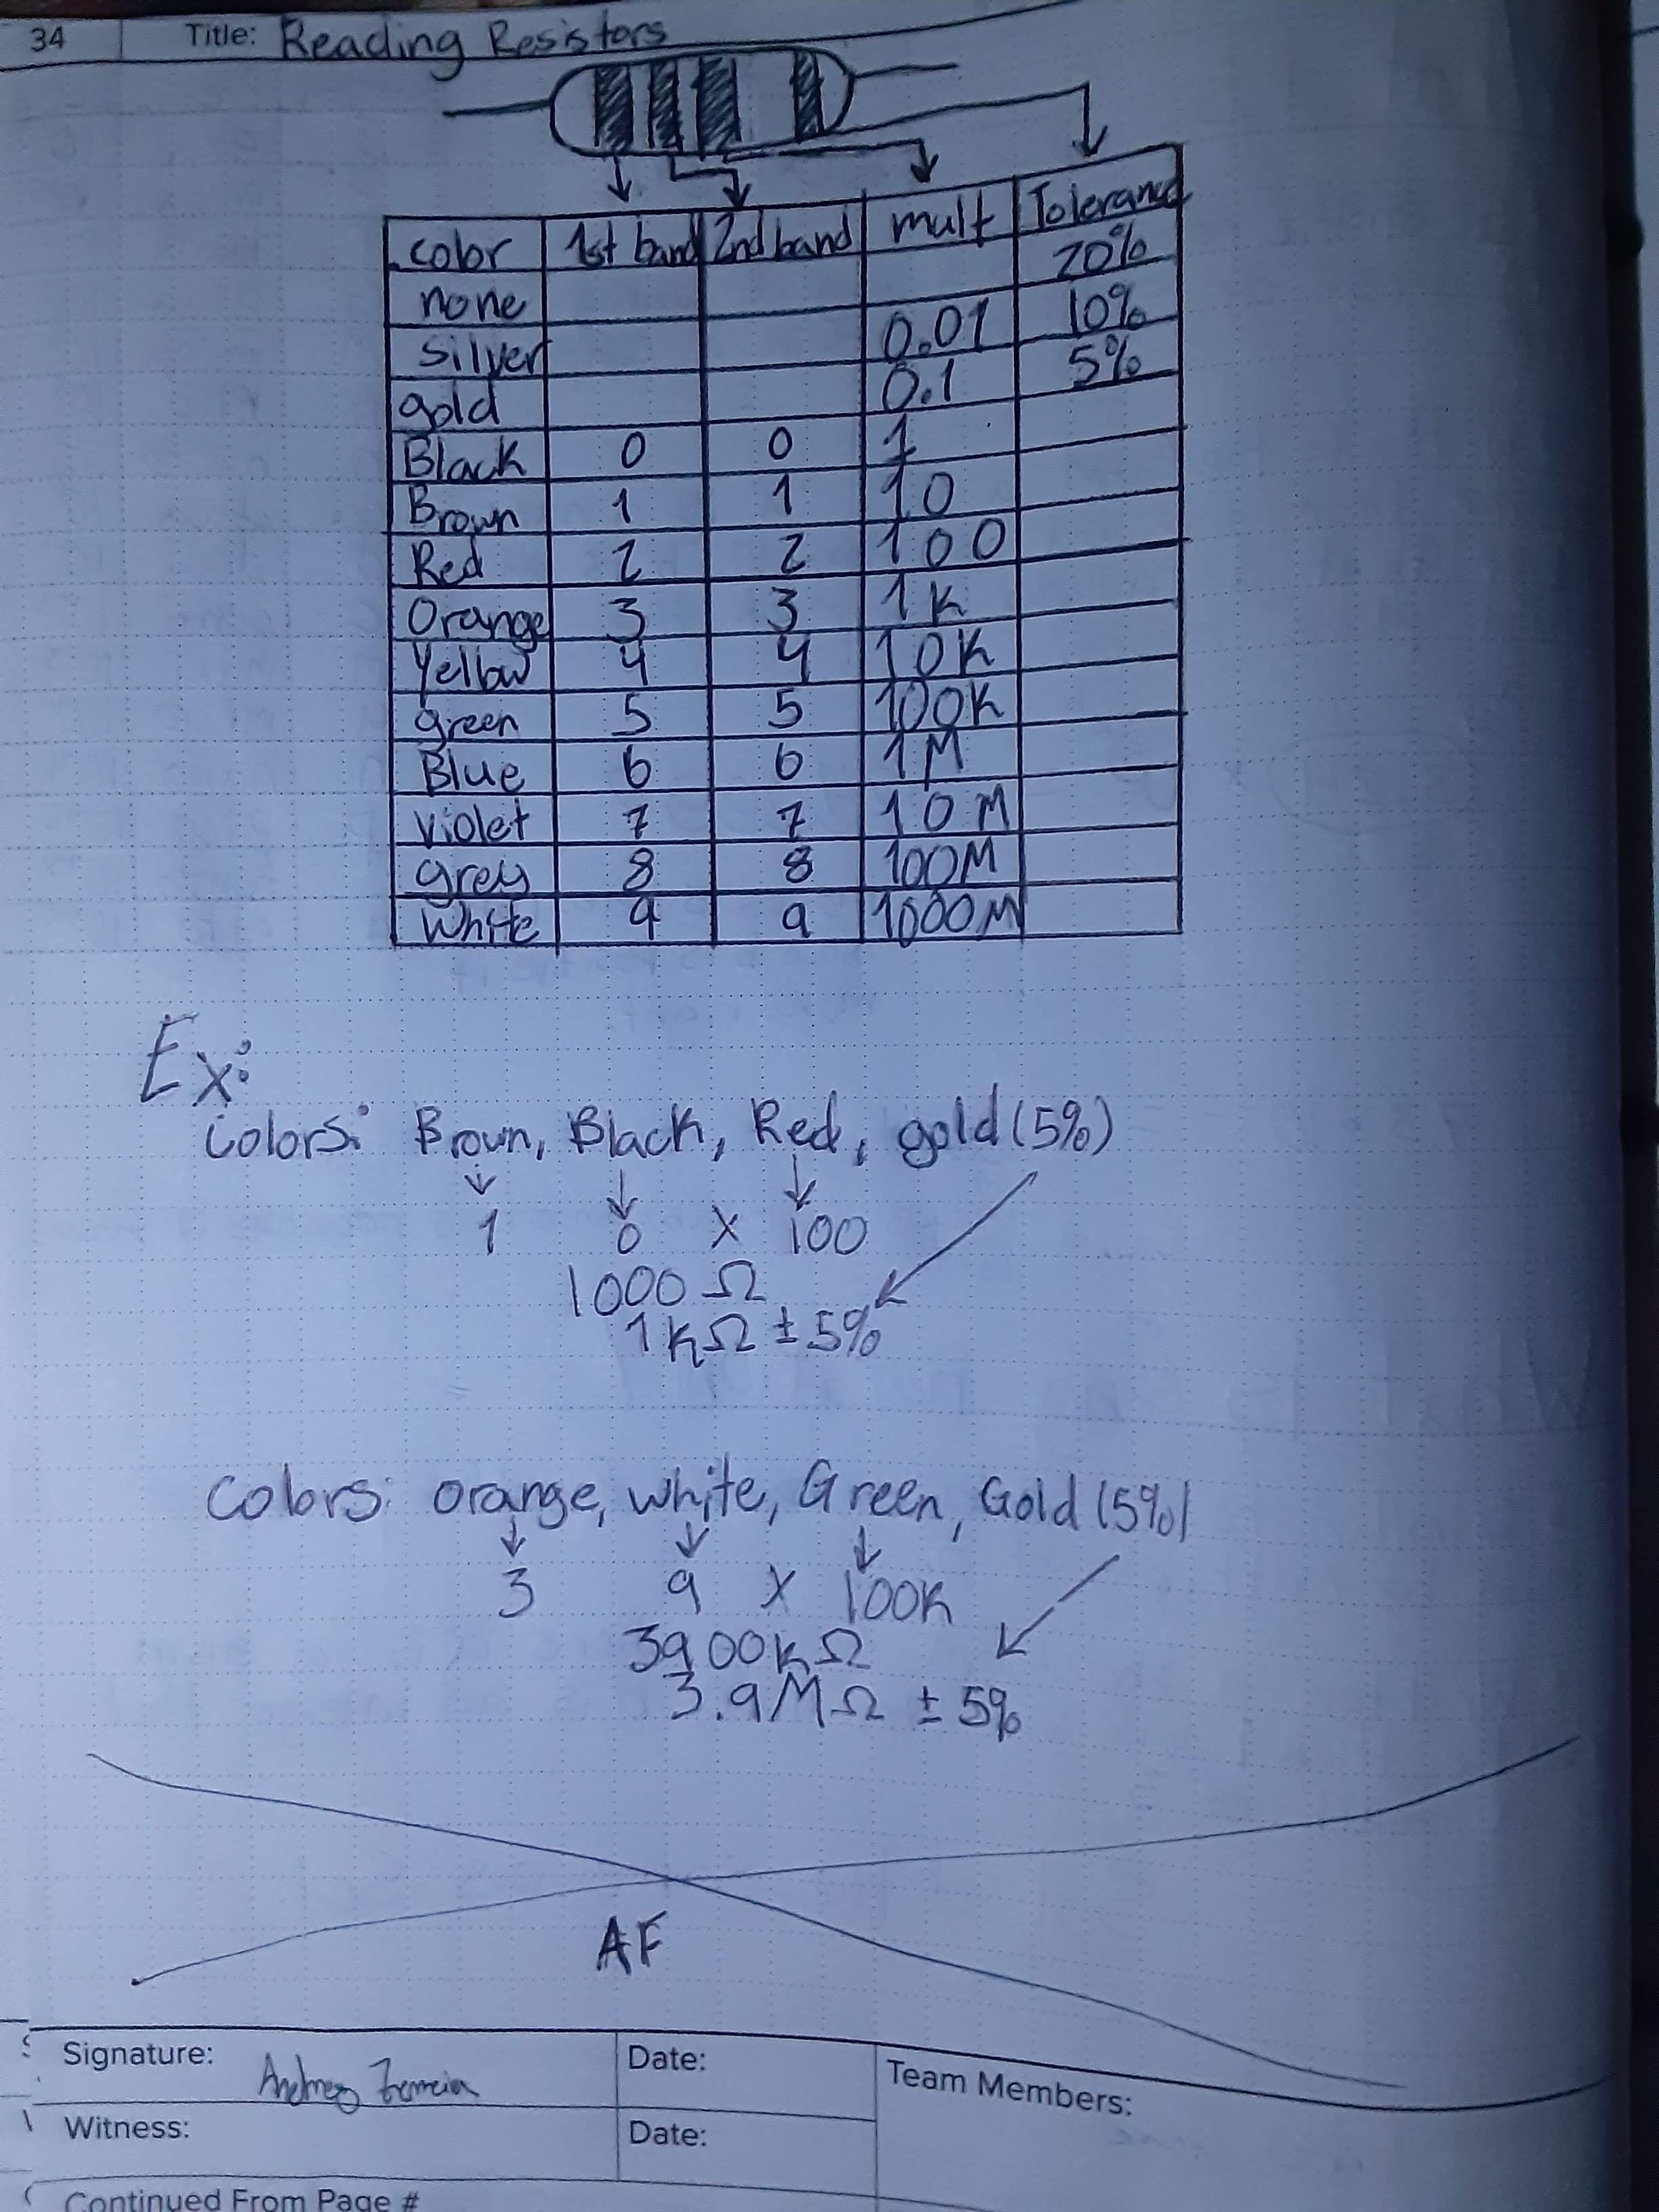 34 Title: Reading Resistors
color 1st band 2nd band mult Tolerance
none 20%
silver 0.01 10%
gold 0.1 5%
Black 0 0 1
Brown 1 1 10
Red 2 2 100
Orange 3 3 1k
Yellow 4 4 10K
green 5 5 100K
Blue 6 6 1M
violet 7 7 10M
grey 8 8 100M
White 9 9 1000M
Ex:
Colors: Brown, Black, Red, gold (5%)
1 0 x 100
1000 Ω
1kΩ ± 5%
Colors: orange, white, Green, Gold (5%)
3 9 x 100k
3900kΩ
3.9MΩ ± 5%
AF
Signature: Date: Team Members:
Witness: Date:
Continued From Page #